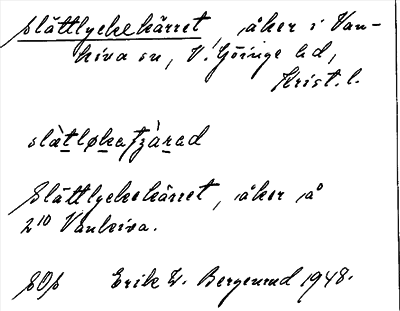 Slättlyckekärret, åker i Van-
kiva sn, V. Göinge hd,
Krist. l.
slàtløkaʃʒàrad
Slättlyckekärret, åker å
2¹⁰ Vankiva.
Erik W. Bergenrud 1948.